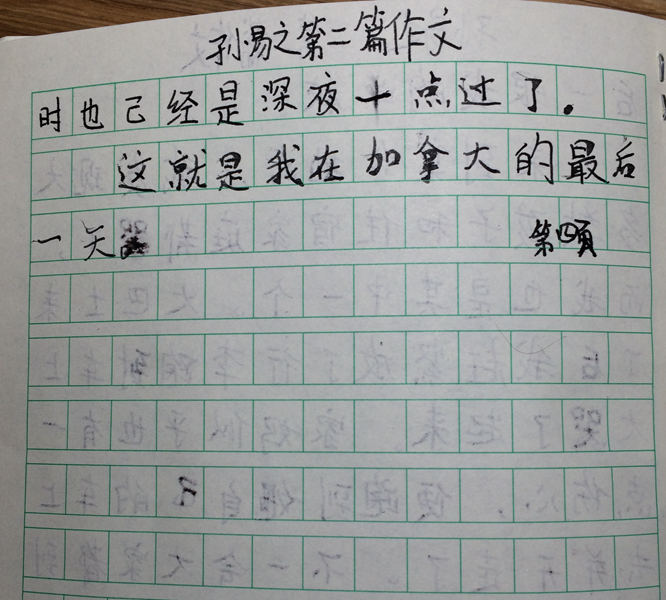 孙易之第二篇作文
时也己经是深夜十点过了。
这就是我在加拿大的最后
一天
第四页